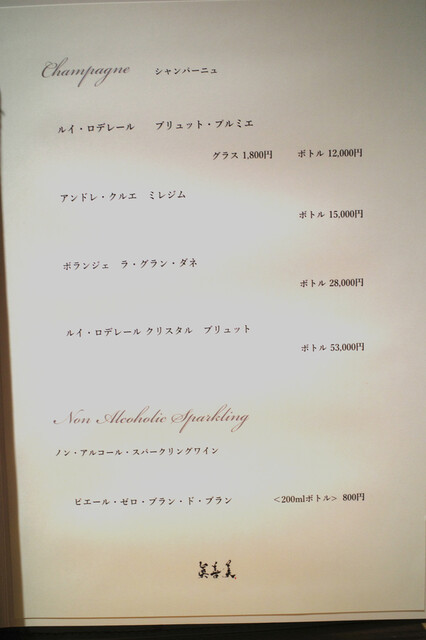 Champagne シャンパーニュ
ルイ・ロデレール ブリュット・プルミエ
グラス 1,800円 ボトル 12,000円
アンドレ・クルエ ミレジム
ボトル 15,000円
ボランジェ ラ・グラン・ダネ
ボトル 28,000円
ルイ・ロデレール クリスタル ブリュット
ボトル 53,000円
Non Alcoholic Sparkling
ノン・アルコール・スパークリングワイン
ピエール・ゼロ・ブラン・ド・ブラン <200mlボトル> 800円